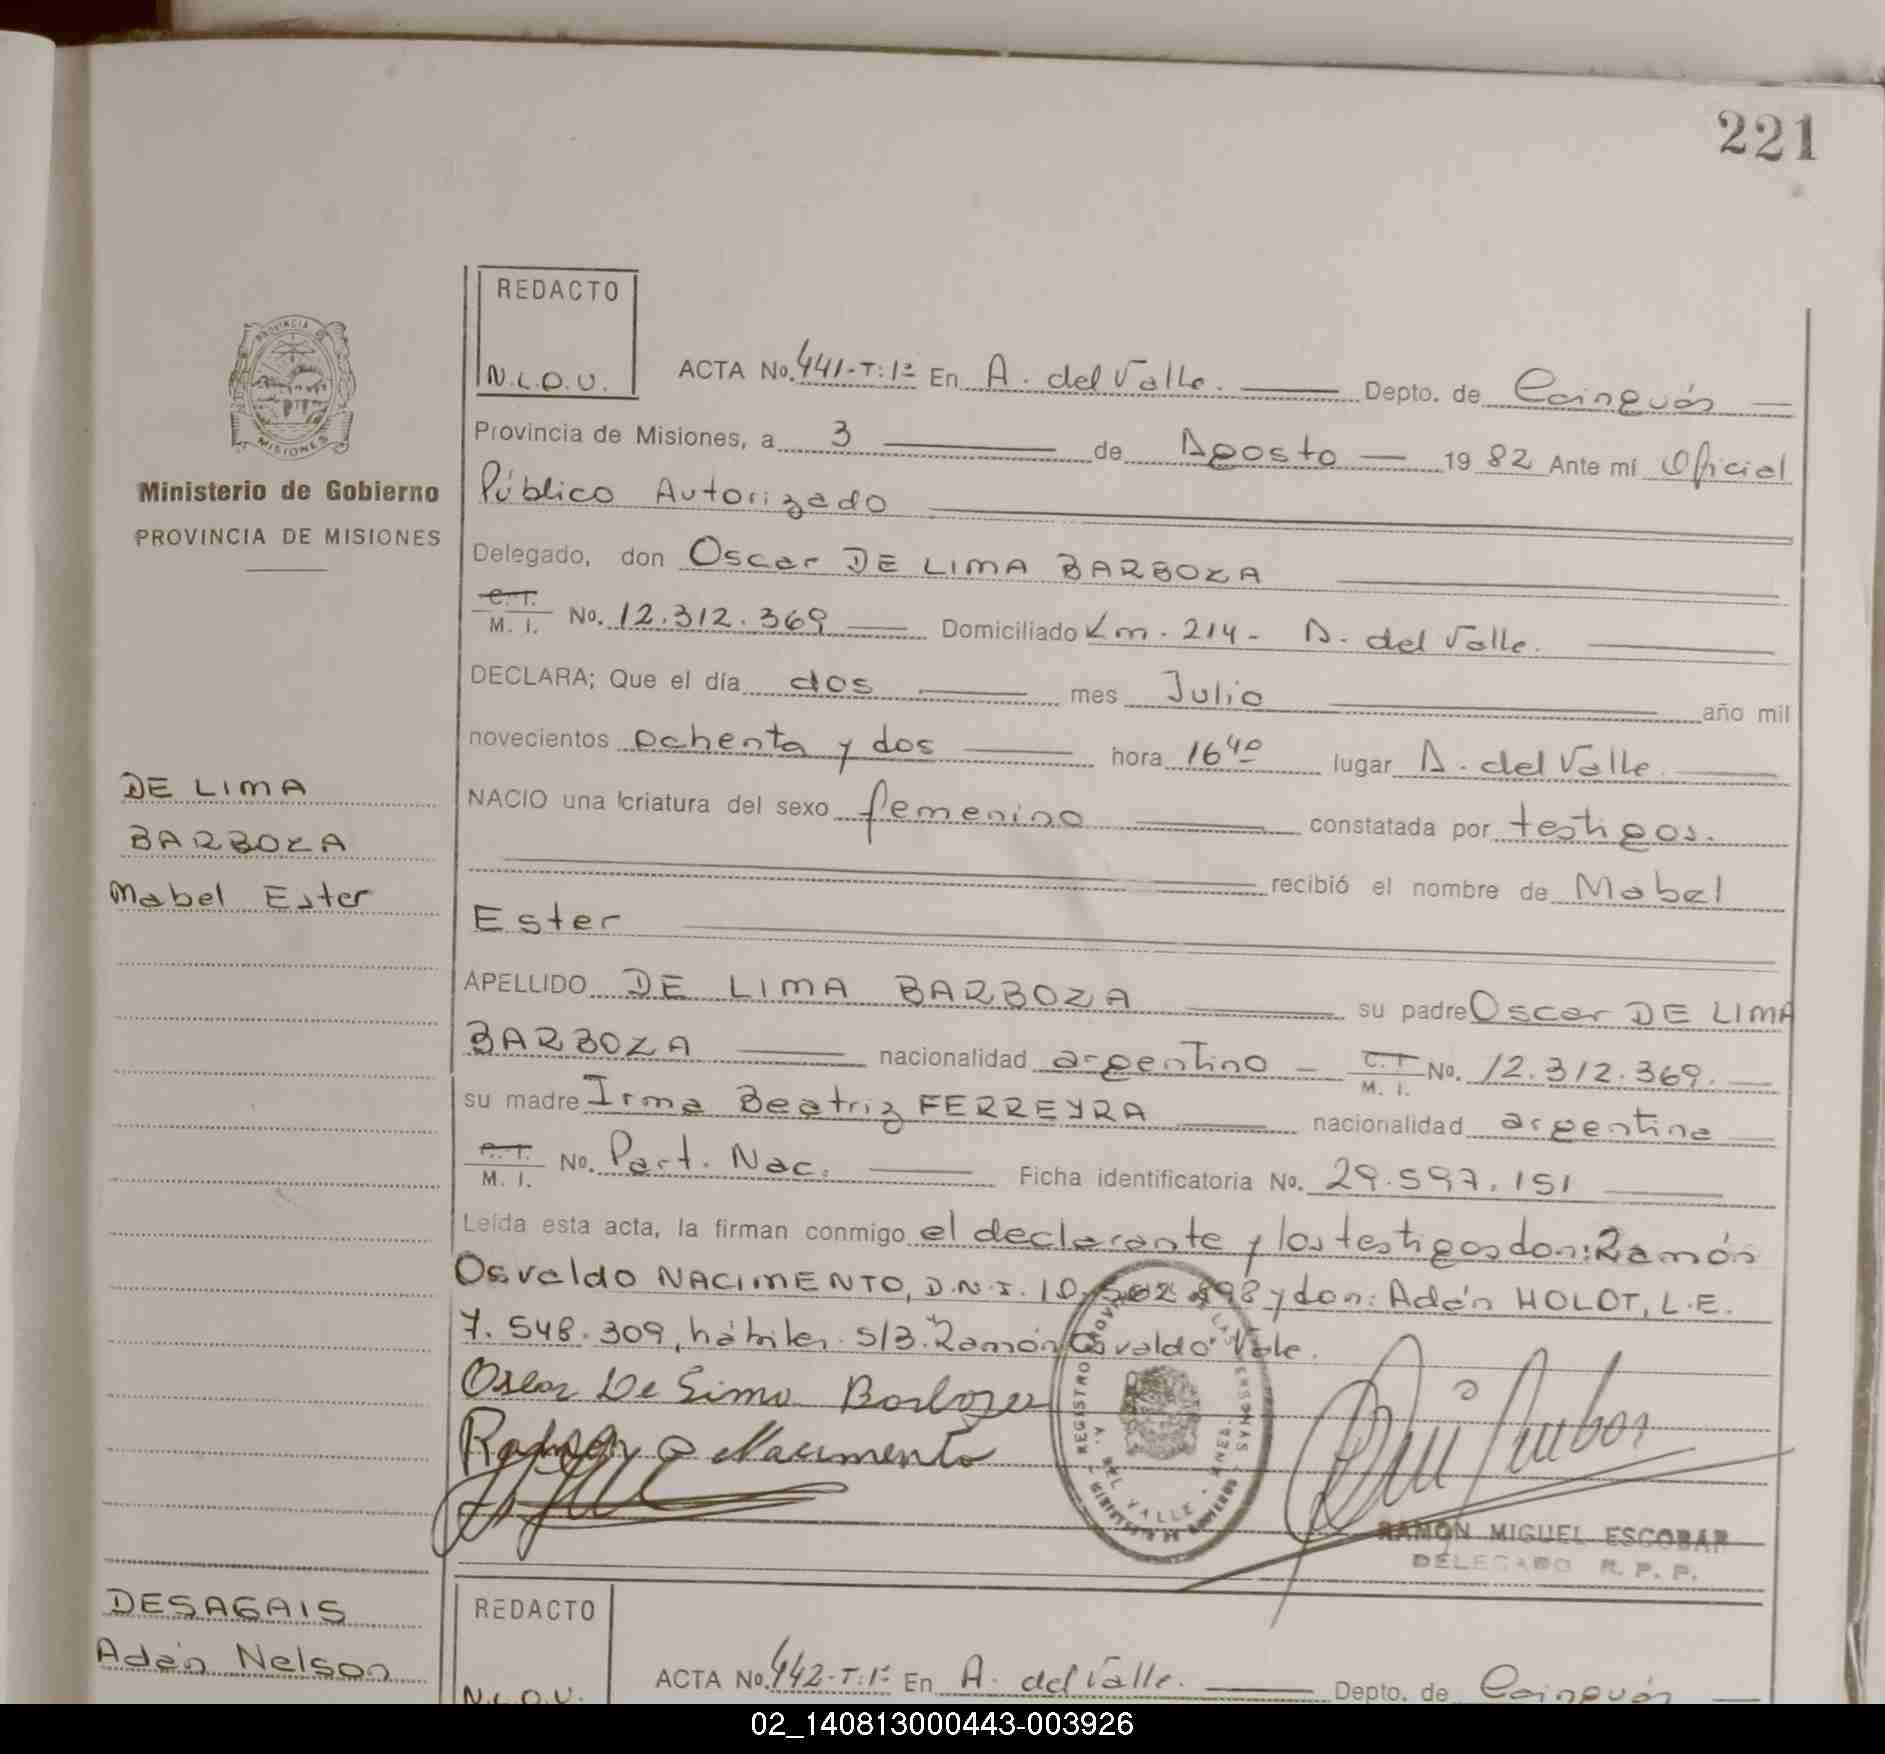 221
REDACTO
N.L.D.U.
ACTA No. 441-T:1º En A. del Valle. Depto. de Cainguás
PROVINCIA DE MISIONES
Provincia de Misiones, a 3 de Agosto 19 82 Ante mí Oficial
Ministerio de Gobierno
PROVINCIA DE MISIONES
Público Autorizado
Delegado, don Oscar DE LIMA BARBOZA
C.T. M. I. No. 12.312.369 Domiciliado Km. 214- A. del Valle.
DECLARA; Que el día dos mes Julio año mil
novecientos ochenta y dos hora 16⁴⁰ lugar A. del Valle
DE LIMA
BARBOZA
Mabel Ester
NACIO una criatura del sexo femenino constatada por testigos.
recibió el nombre de Mabel
Ester
APELLIDO DE LIMA BARBOZA su padre Oscar DE LIMA
BARBOZA nacionalidad argentino C.T M. I. No. 12.312.369.
su madre Irma Beatriz FERREYRA nacionalidad argentina
C.T. M. I. No. Part. Nac. Ficha identificatoria No. 29.597.151
Leída esta acta, la firman conmigo el declarante y los testigos don: Ramón
Osvaldo NACIMENTO, D.N.I. 10. y don: Adán HOLOT, L.E.
7.548.309, hábiles. S/B. "Ramón Osvaldo" Vale.
Oscar De Lima Barboza
Ramon O Nacimento
REGISTRO PROV. DE LAS PERSONAS
A. DEL VALLE - MNES.
RAMÓN MIGUEL ESCOBAR
DELEGADO R. P. P.
DESAGAIS
Adán Nelson
REDACTO
N.L.D.U.
ACTA No. 442-T:1º En A. del Valle. Depto. de Cainguás
02_140813000443-003926